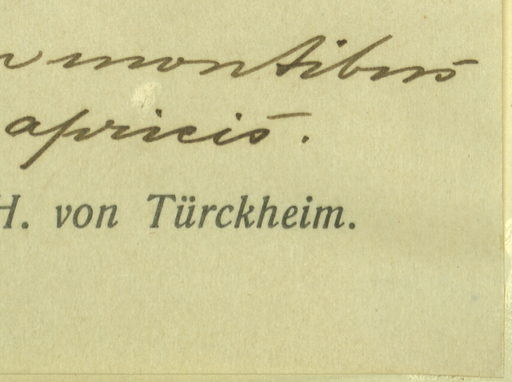 montibus
apricis.
H. von Türckheim.